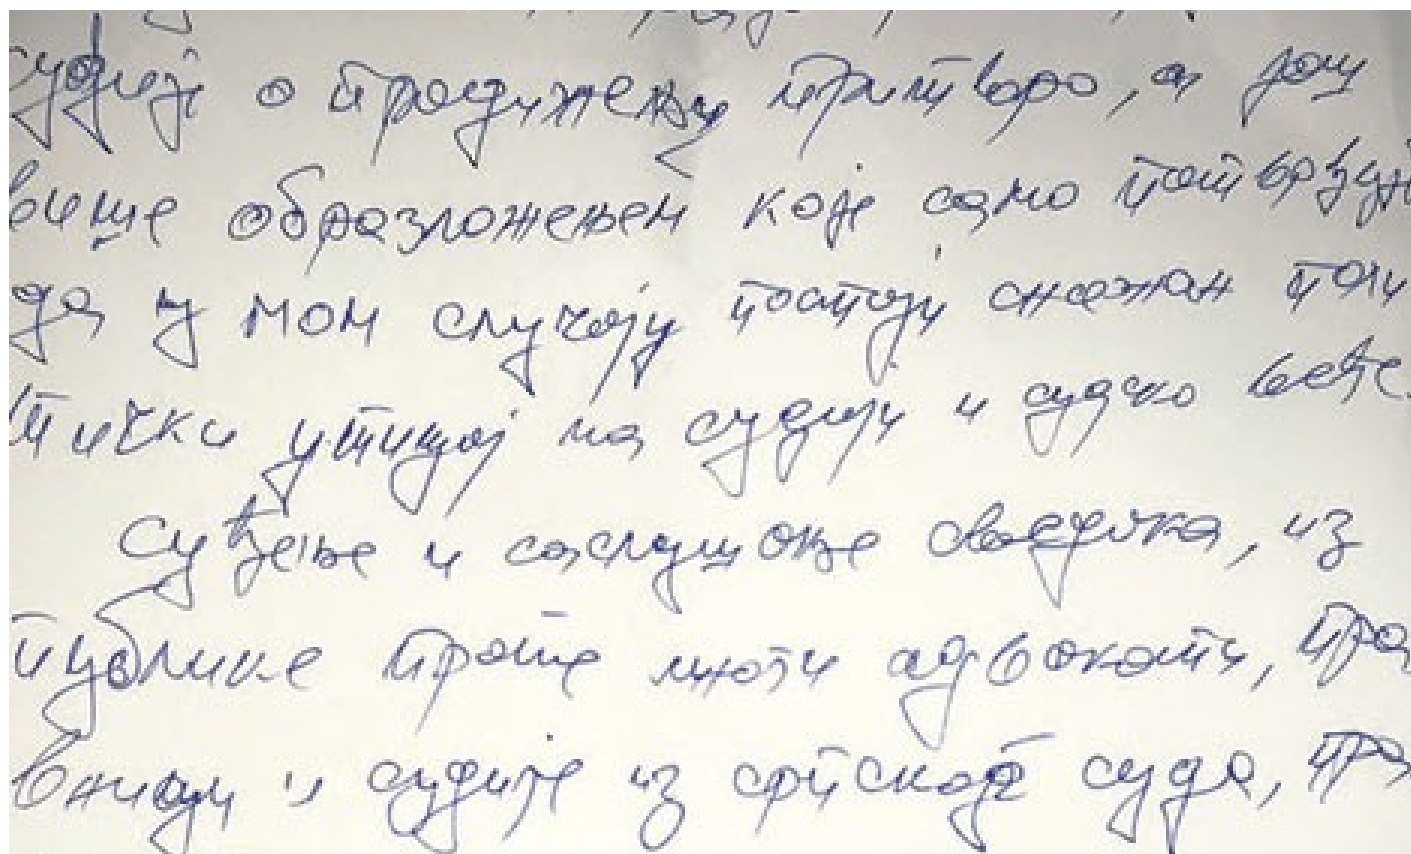 судији о продужењу притвора, а још
више образложењем које само потврђују
да у мом случају постоји снажан поли
тички утицај на судију и судско веће.
Суђење и саслушање сведока, из
публике прате многи адвокати, пра
вници и судије из српског суда, пра